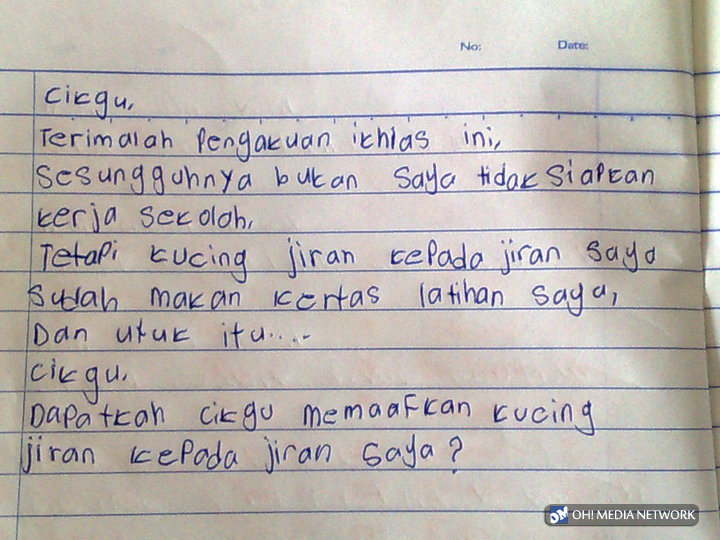 No: Date:
Cikgu,
Terimalah Pengakuan ikhlas ini,
Sesungguhnya bukan saya tidak siapkan
kerja sekolah,
Tetapi kucing jiran kepada jiran saya
sudah makan kertas latihan saya,
Dan utuk itu....
Cikgu,
Dapatkah cikgu memaafkan kucing
jiran kepada jiran saya?
ON OH! MEDIA NETWORK